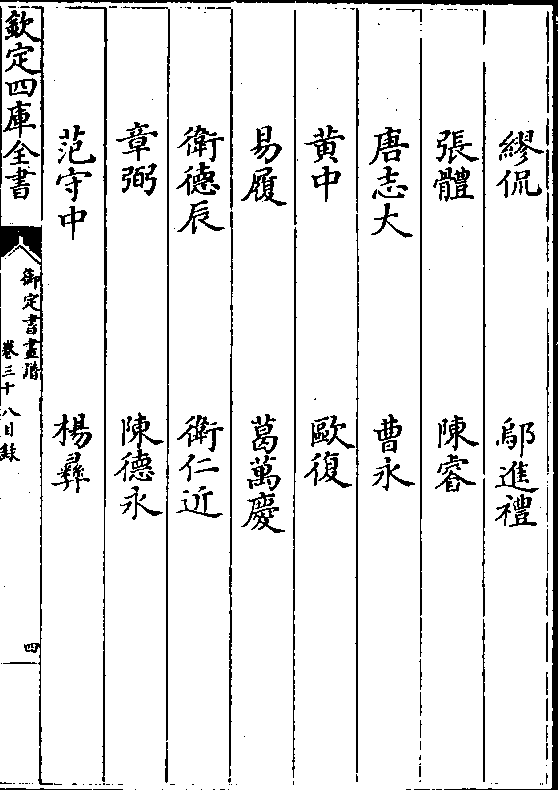 繆侃　鄔進禮
張體　陳睿
唐志大　曹永
黃中　歐復
易履　葛萬慶
衛德辰　衛仁近
章弼　陳德永
范守中　楊彞
欽定四庫全書
御定書畫譜
卷三十八目錄
四